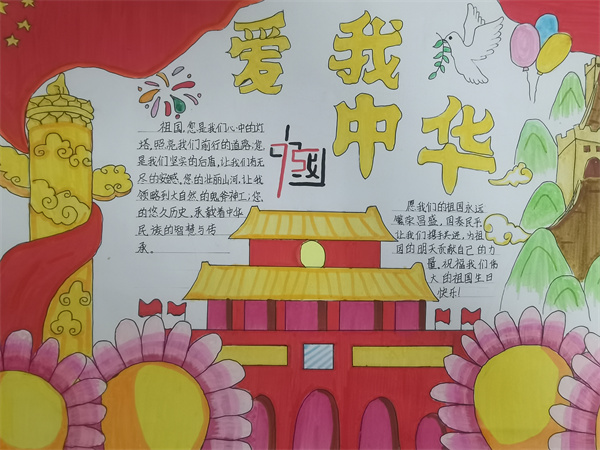 爱我
中华
祖国,您是我们心中的灯
塔,照亮我们前行的道路;您
是我们坚实的后盾,让我们有无
尽的安感,您的壮丽山河,让我
领略到大自然的鬼斧神工;您
的悠久历史,承载着中华
民族的智慧与传
承。
愿我们的祖国永远
繁荣昌盛,国泰民安
让我们携手共进,为祖
国的明天贡献自己的力
量。祝福我们伟
大的祖国生日
快乐!